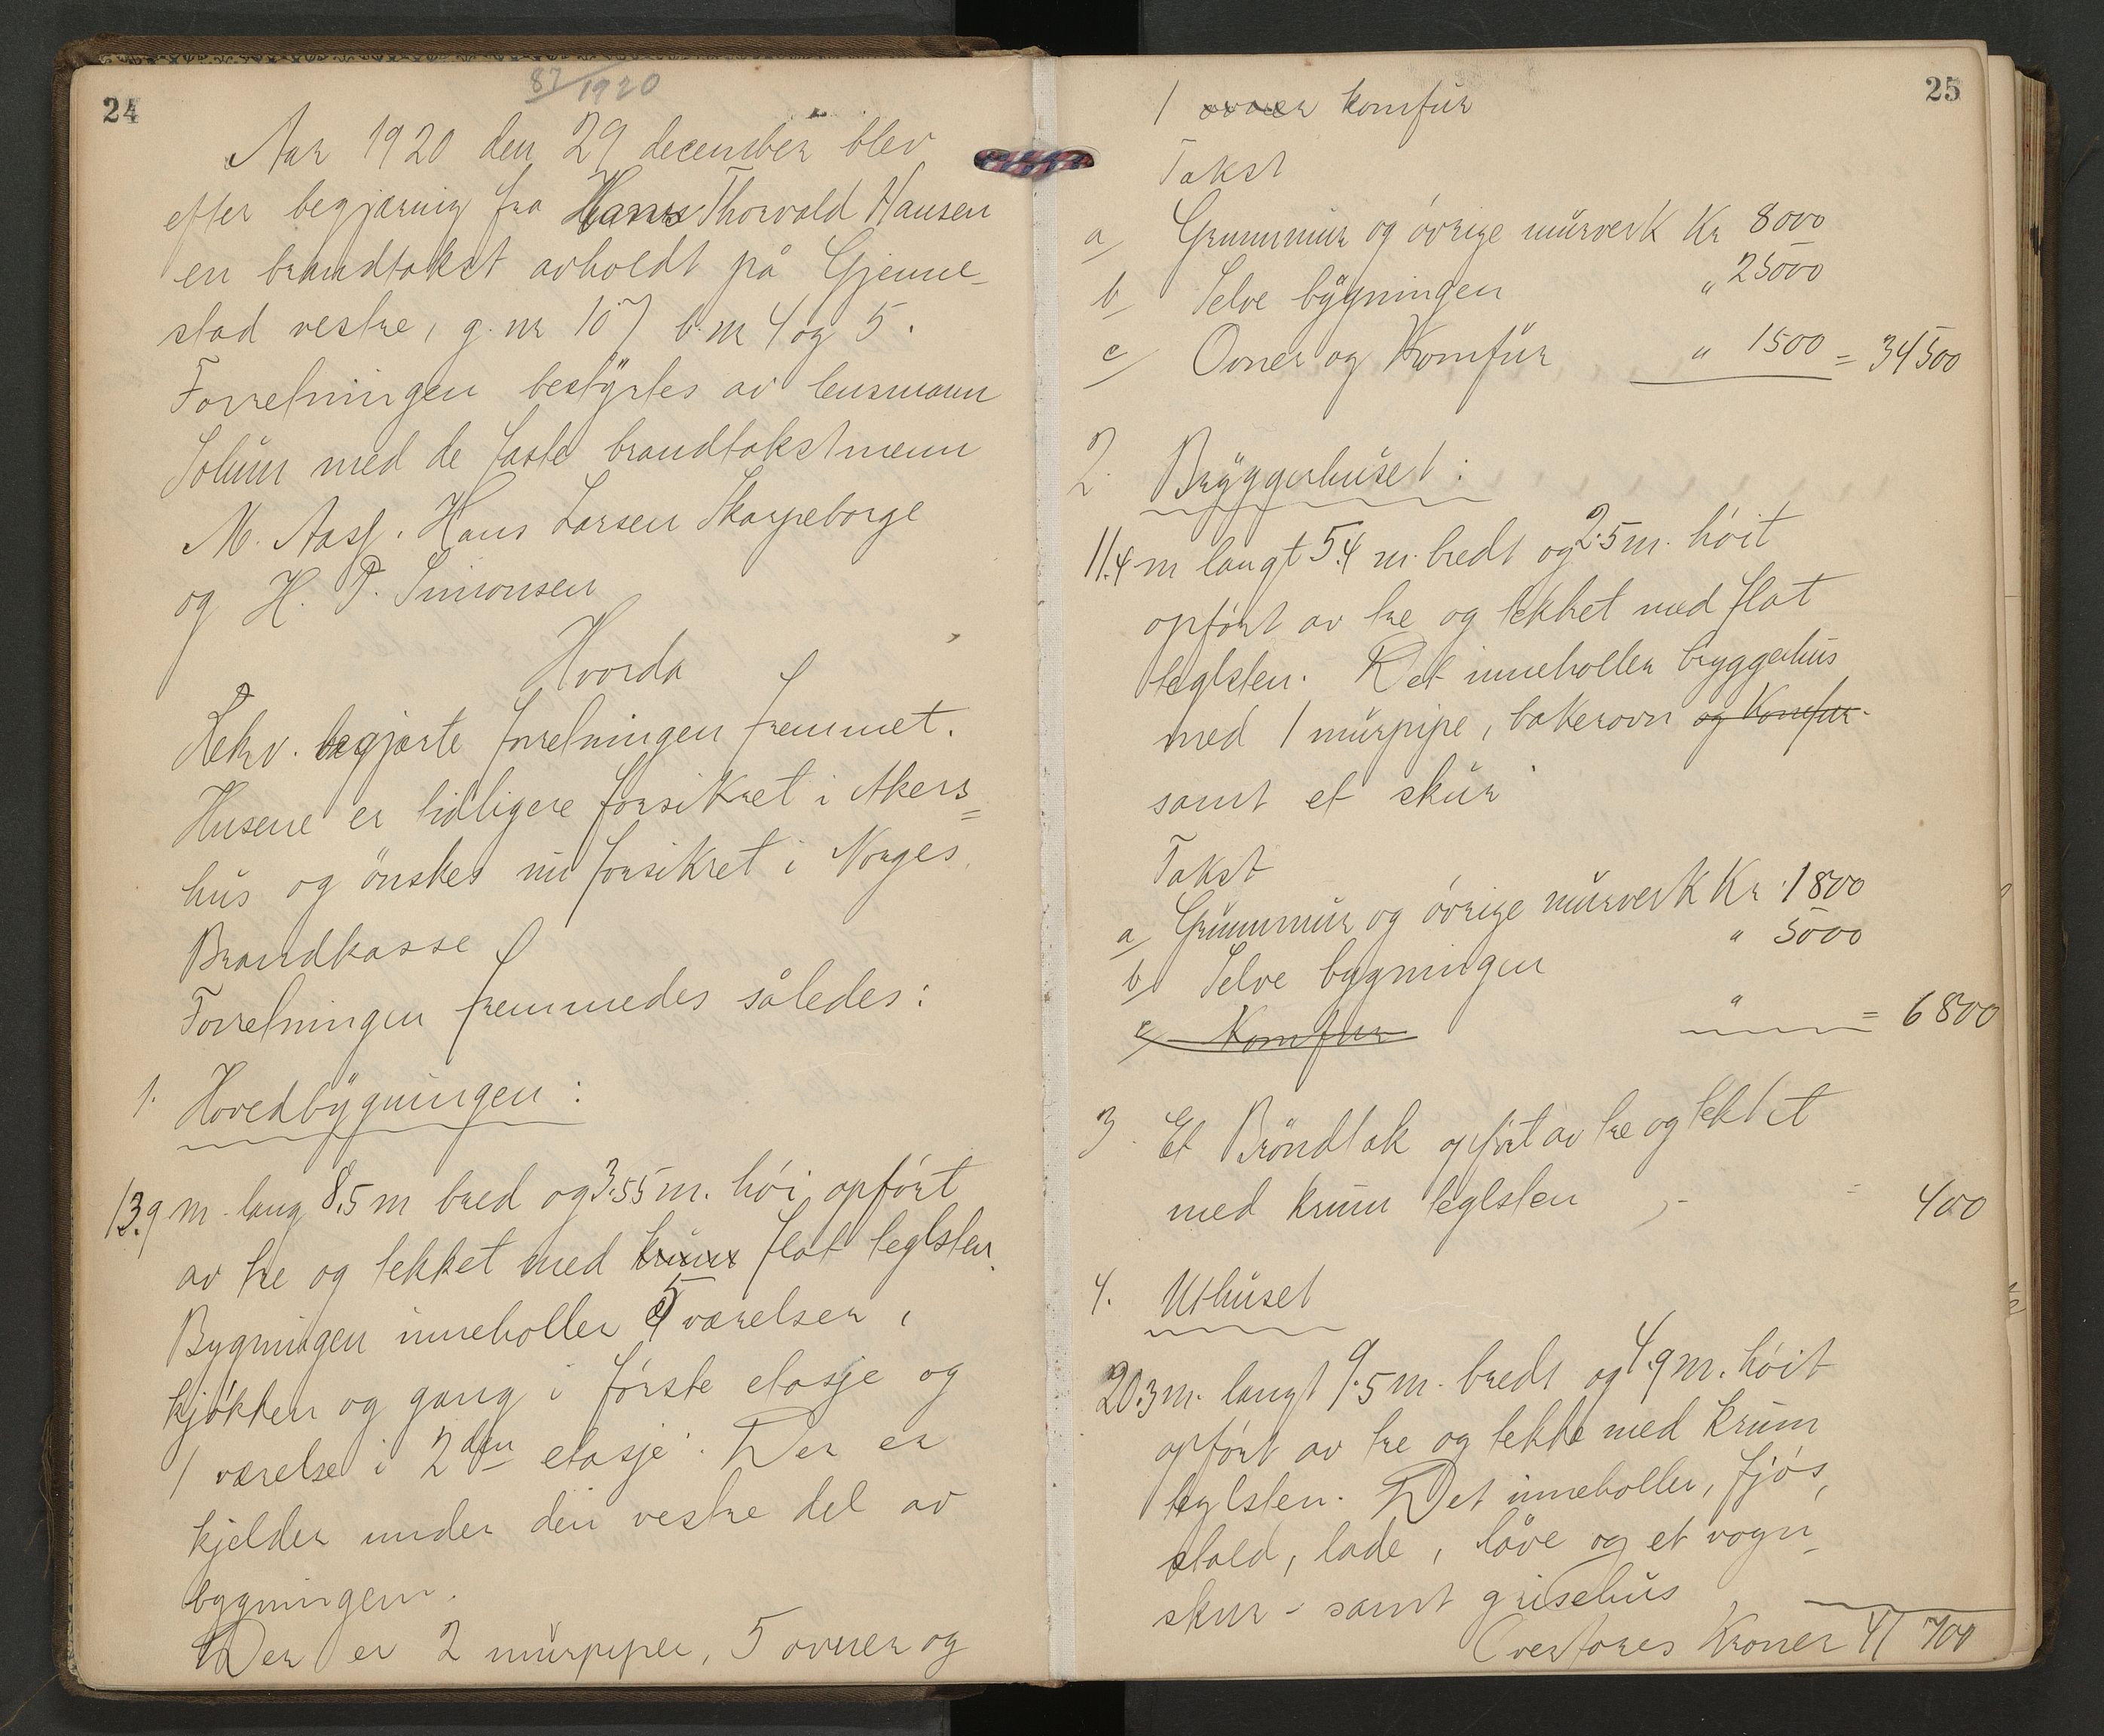 24
87/1920
Aar 1920 den 29 december blev
efter begjæring fra Hans Thorvald Hansen
en brandtakst avholdt på Gjenne-
stad vestre, g. nr 107 b. nr 4 og 5.
Forretningen bestyrtes av lensmann
Solum med de faste brandtakstmenn
M. Aasl. Hans Larsen Skarpeborge
og H. P. Simonsen
Hvorda
Rekv. begjærte forretningen fremmet.
Husene er tidligere forsikret i Akers=
hus og ønskes nu forsikret i Norges
Brandkasse
Forretningen fremmedes således:
1. Hovedbygningen:
13.9 m. lang 8.5 m bred og 3.55 m. høi, opført
av tre og tekket med krum flat teglsten.
Bygningen inneholler 5 værelser,
kjøkken og gang i første etasje og
1 værelse i 2den etasje. Der er
kjelder under den vestre del av
bygningen.
Der er 2 murpiper, 5 ovner og
25
1 ovner komfur
Takst
a/ Grunnmur og øvrige murverk Kr 8000
b/ Selve bygningen " 25000
c/ Ovner og Komfur " 1500 = 34500
2. Bryggerhuset:
11.4 m langt 5.4 m. bredt og 2.5 m. høit
opført av tre og tekket med flat
teglsten. Det inneholler bryggerhus
med 1 murpipe, bakerovn og Komfur
samt et skur
Takst
a/ Grunnmur og øvrige murverk Kr. 1800
b/ Selve bygningen " 5000
c/ Komfur " = 6800
3. Et Brøndtak opført av tre og tekket
med krum teglsten ,- = 400
4. Uthuset
20.3 m. langt 9.5 m. bredt og 4.9 m. høit
opført av tre og tekke med krum
teglsten. Det inneholler, fjøs,
stald, lade, låve og et vogn-
skur - samt grisehus
Overføres Kroner 41 700